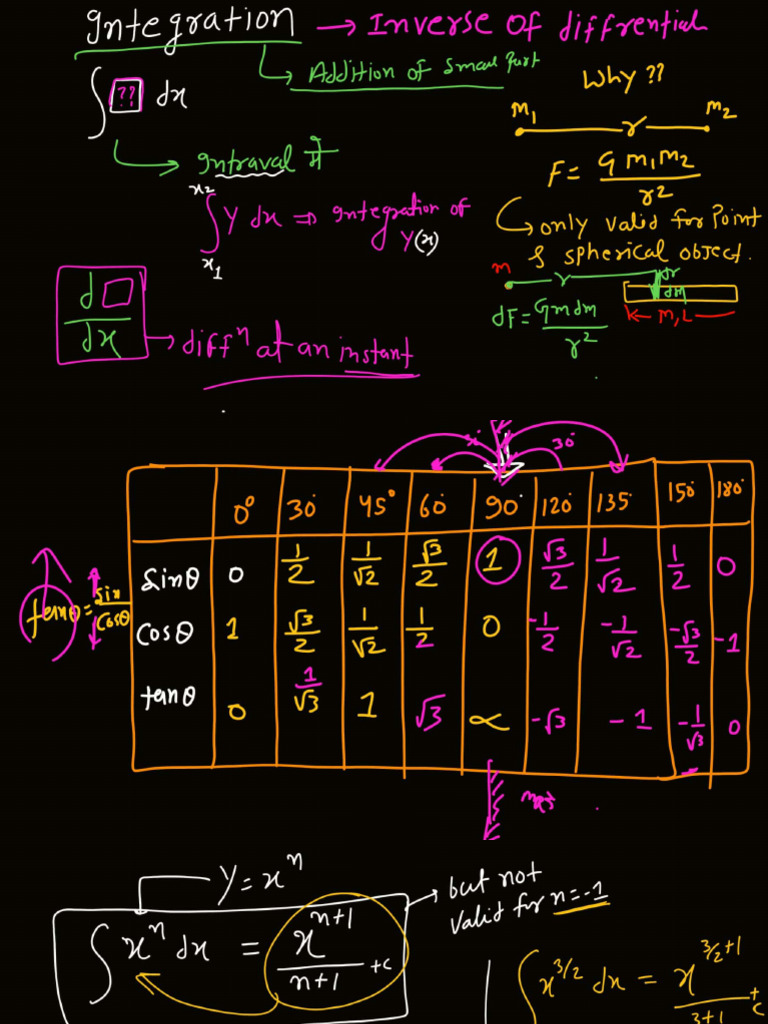 Integration → Inverse of diffrential
↳ Addition of small part
∫ ?? dx
→ Intraval में
∫ₓ₁ˣ² Y dx ⇒ Integration of
Y(x)
d□/dx → diffⁿ at an instant
Why ??
m₁ r m₂
F = G m₁m₂/r²
↳ only valid for Point
& spherical object.
m r dr
dM
dF = Gmdm/r² M, L
30°
0° 30° 45° 60° 90° 120° 135° 150° 180°
sinθ 0 1/2 1/√2 √3/2 1 √3/2 1/√2 1/2 0
tanθ = sin/cosθ
cosθ 1 √3/2 1/√2 1/2 0 -1/2 -1/√2 -√3/2 -1
tanθ 0 1/√3 1 √3 ∝ -√3 -1 -1/√3 0
Y = xⁿ
∫ xⁿ dx = xⁿ⁺¹/n+1 +c
→ but not
valid for n=-1
∫ x^3/2 dx = x^3/2+1
+c